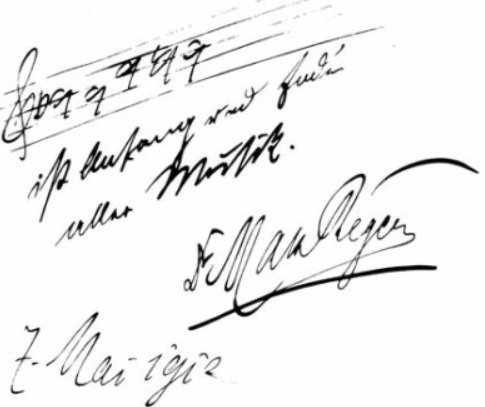 ist Anfang und Ende
aller Musik.
Dr Max Reger
7. Mai